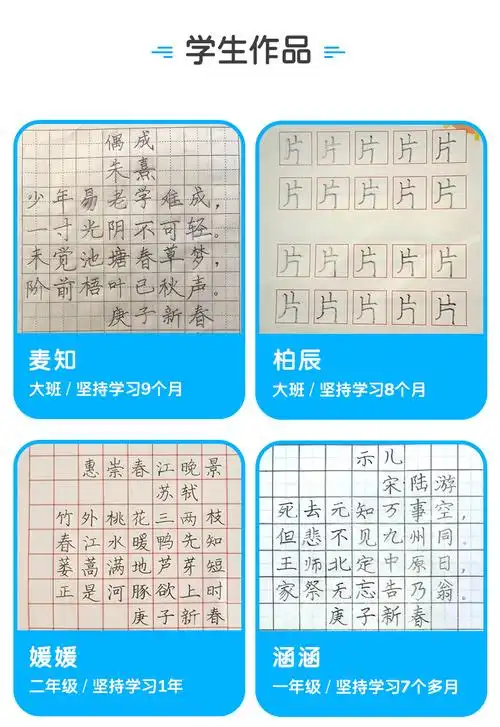 学生作品
偶成
朱熹
少年易老学难成，
一寸光阴不可轻。
未觉池塘春草梦，
阶前梧叶已秋声。
庚子新春
麦知
大班 / 坚持学习9个月
片片片片片
片片片片片
片片片片片
片片片片片
柏辰
大班 / 坚持学习8个月
惠崇春江晚景
苏轼
竹外桃花三两枝
春江水暖鸭先知
蒌蒿满地芦芽短
正是河豚欲上时
庚子新春
媛媛
二年级 / 坚持学习1年
示儿
宋·陆游
死去元知万事空，
但悲不见九州同。
王师北定中原日，
家祭无忘告乃翁。
庚子新春
涵涵
一年级 / 坚持学习7个多月